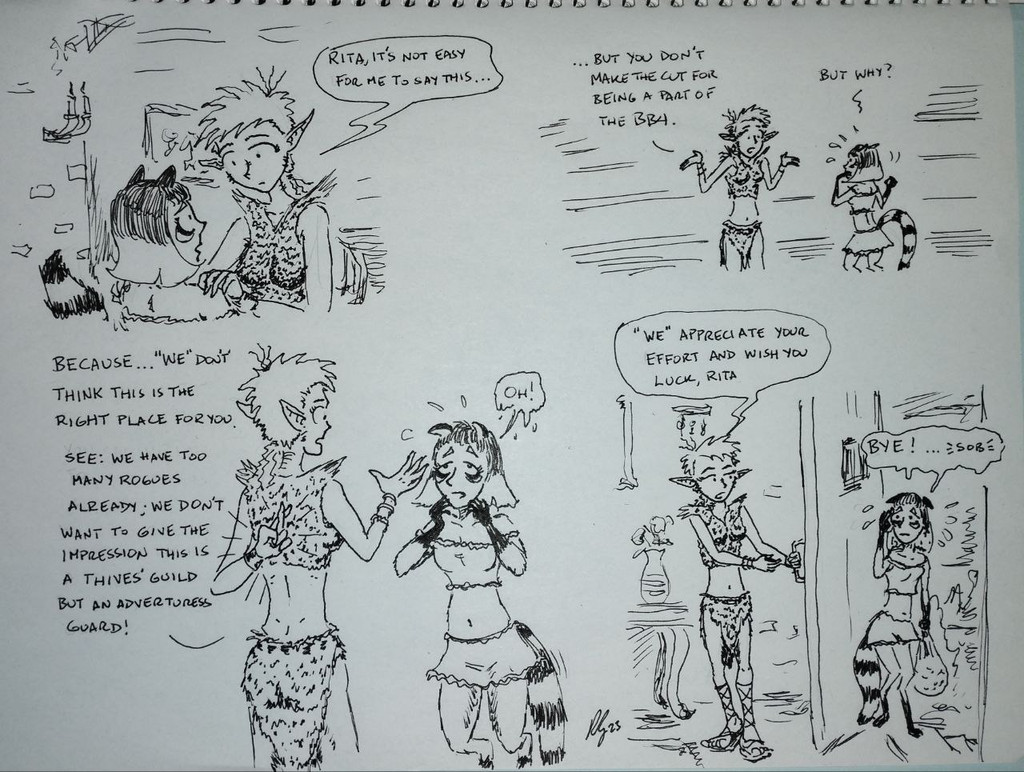 RITA, IT'S NOT EASY
FOR ME TO SAY THIS...
... BUT YOU DON'T
MAKE THE CUT FOR
BEING A PART OF
THE BB4.
BUT WHY?
BECAUSE... "WE" DON'T
THINK THIS IS THE
RIGHT PLACE FOR YOU.
SEE: WE HAVE TOO
MANY ROGUES
ALREADY; WE DON'T
WANT TO GIVE THE
IMPRESSION THIS IS
A THIVES' GUILD
BUT AN ADVERTURESS
GUARD!
OH!
"WE" APPRECIATE YOUR
EFFORT AND WISH YOU
LUCK, RITA
BYE! ... SOB